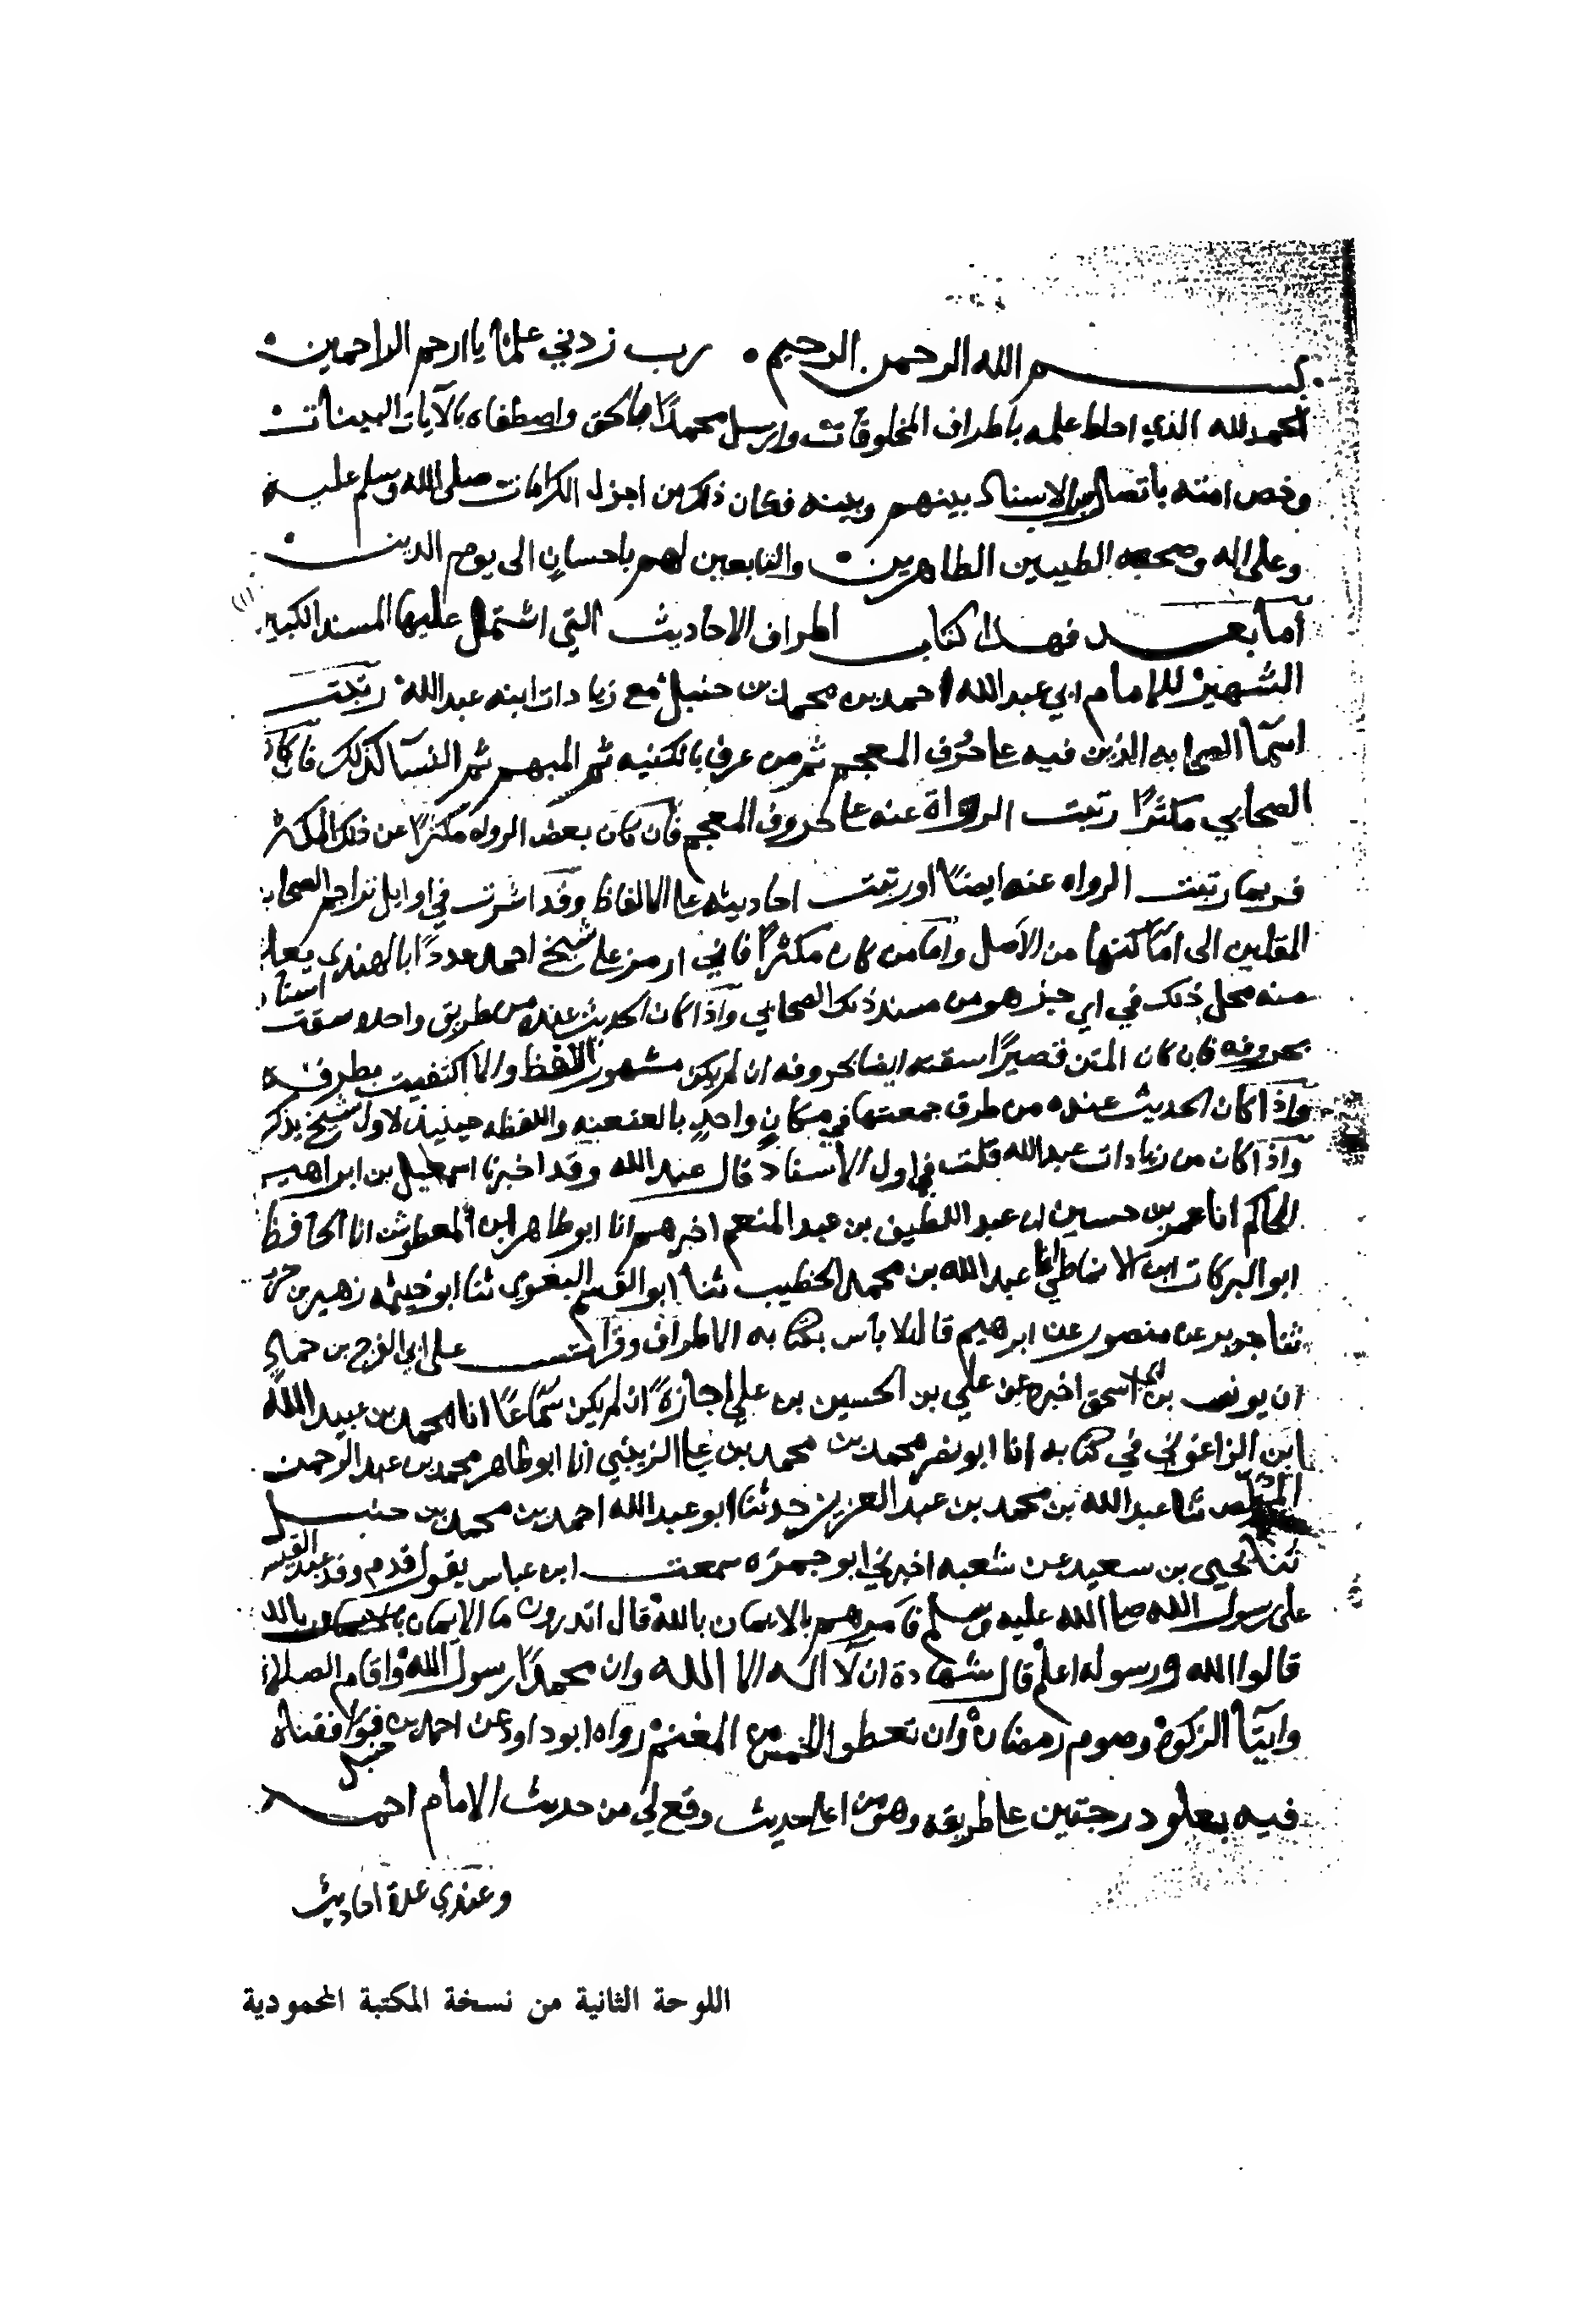 بسم الله الرحمن الرحيم رب زدني علما يا ارحم الراحمين
الحمد لله الذي احاط علمه باطراف المخلوقات وارسل محمدًا بالحق واصطفاه بالآيات البينات
وخص امته باتصال الاسناد بينهم وبينه فكان ذلك من اجزل الكرامات صلى الله وسلم عليه
وعلى اله وصحبه الطيبين الطاهرين والتابعين لهم باحسانٍ الى يوم الدين
أما بعد فهذا كتاب اطراف الاحاديث التي اشتمل عليها المسند الكبير
الشهير للامام ابي عبد الله احمد بن محمد بن حنبل مع زيادات ابنه عبد الله رتبت
اسما الصحابه الذين فيه على حروف المعجم ثم من عرف بالكنيه ثم المبهم ثم النسا كذلك فان كان
الصحابي مكثرًا رتبت الرواة عنه على حروف المعجم فان كان بعض الرواه مكثرًا عن ذلك المكثر
فربما رتبت الرواه عنه ايضًا او رتبت احاديثه على الالفاظ وقد اشرت في اوايل تراجم الصحابه
المقلين الى اماكنها من الأصل واما من كان مكثرًا فاني ارمز على شيخ احمد عددًا بالهندي يعلم
منه محل ذلك في اي جز هو من مسند ذلك الصحابي واذا كان الحديث عنده من طريق واحد سقت اسناده
بحروفه فان كان المتن قصيرًا سقته ايضا بحروفه ان لم يكن مشهور اللفظ والا اكتفيت بطرفه
واذا كان الحديث عنده من طرق جمعتها في مكانٍ واحدٍ بالعنعنه واللفظه حينيذ لاول شيخ يذكر
واذا كان من زيادات عبد الله قلت في اول الاسناد قال عبد الله وقد اخبرنا اسمعيل بن ابراهيم
الحاكم انا عمر بن حسين ان عبد اللطيف بن عبد المنعم اخبرهم انا ابو طاهر ابن المعطوش انا الحافظ
ابو البركات ابن الانماطي انا عبد الله بن محمد الخطيب ثنا ابو القسم البغوي ثنا ابو خيثمه زهير بن حرب
ثنا جرير عن منصور عن ابرهيم قال لا باس بكتابه الاطراف وقرأت على ابي الفرج بن حماد
ان يونس بن ابي اسحق اخبره عن علي بن الحسين بن علي اجازةً ان لم يكن سماعًا انا محمد بن عبيد الله
ابن الزاغوني في كتابه انا ابو نصر محمد بن محمد بن علي الزينبي انا ابو طاهر محمد بن عبد الرحمن
المخلص ثنا عبد الله بن محمد بن عبد العزيز حدثنا ابو عبد الله احمد بن محمد بن حنبل
ثنا يحيى بن سعيد عن شعبه اخبرني ابو جمره سمعت ابن عباس يقول قدم وفد عبد القيس
على رسول الله صلى الله عليه وسلم فامرهم بالايمان بالله قال اتدرون ما الايمان بالله
قالوا الله ورسوله اعلم قال شهادة ان لا اله الا الله وان محمدًا رسول الله واقام الصلاة
وايتآ الزكوة وصوم رمضان وان تعطوا الخمس من المغنم رواه ابو داود عن احمد بن حنبل فوافقناه
فيه بعلو درجتين على طريقه وهو من اعلى حديث وقع لي من حديث الامام احمد
وعندي عدة احاديث
اللوحة الثانية من نسخة المكتبة المحمودية